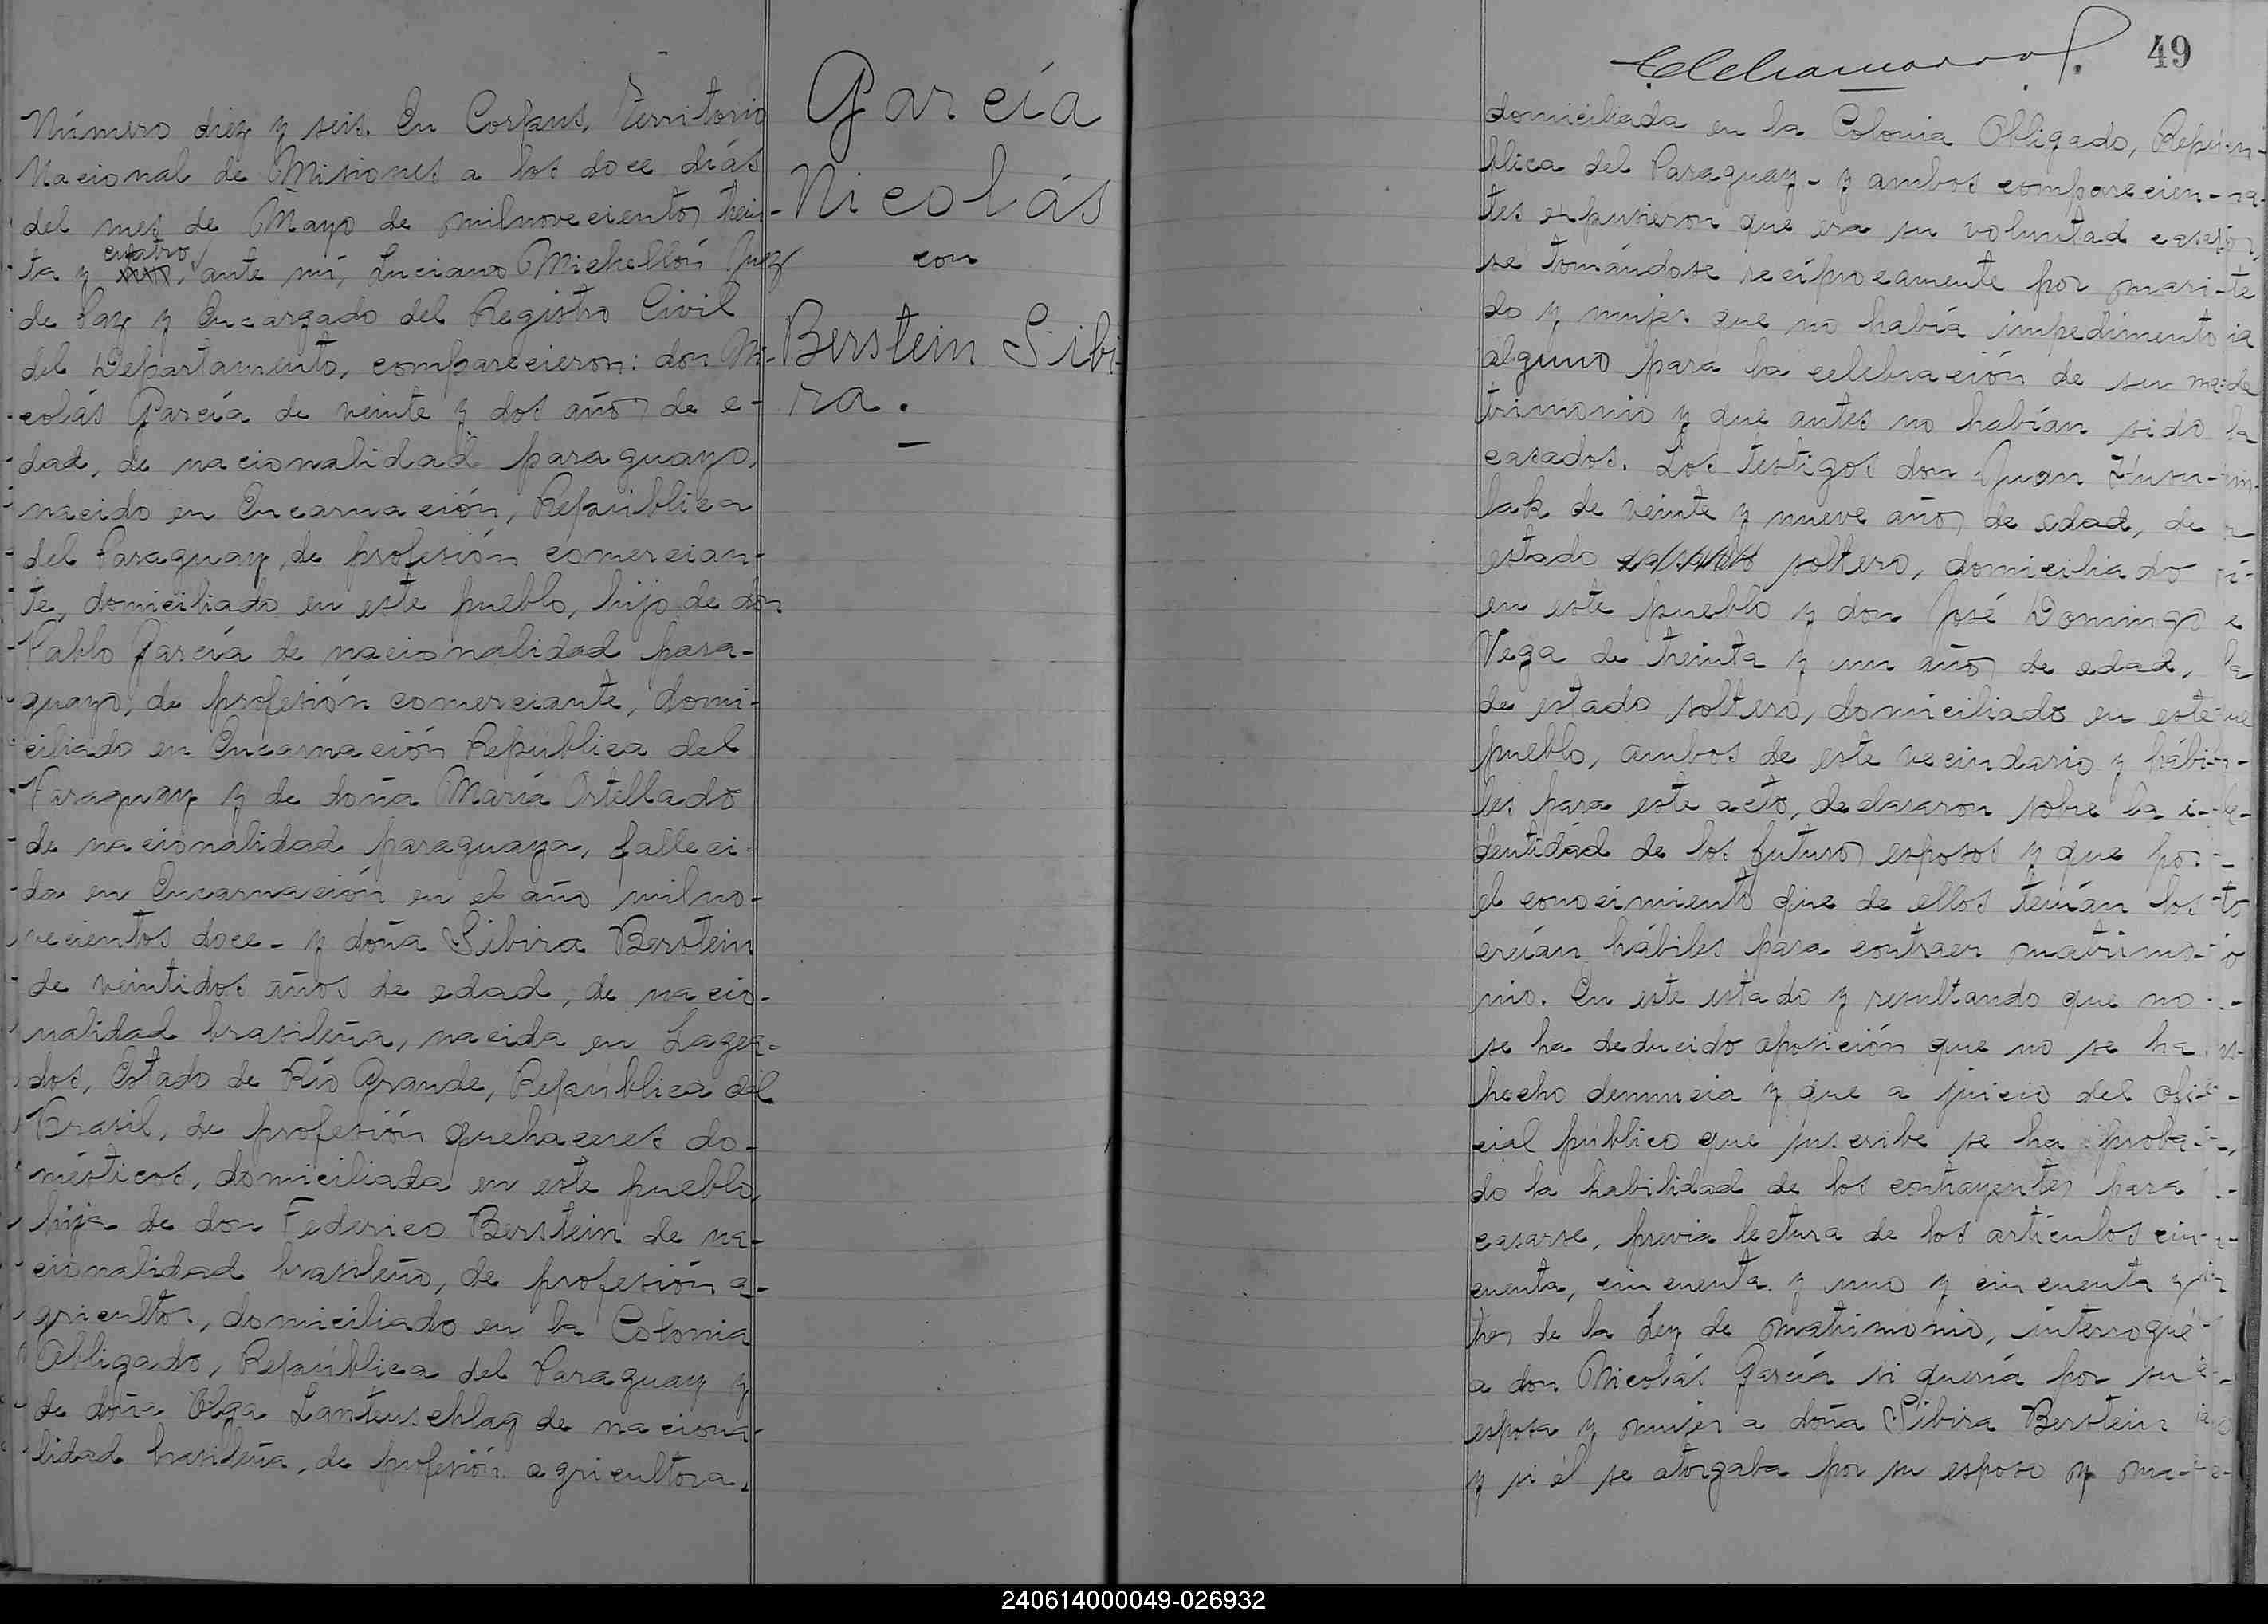 Número diez y seis. En Corpus, Territorio
Nacional de Misiones a los doce días
del mes de Mayo de milnovecientos trein-
ta y cuatro, ante mí, Luciano Michellón Juez
de Paz y Encargado del Registro Civil
del Departamento, comparecieron: don Ni-
colás García de veinte y dos años de e-
dad, de nacionalidad paraguayo,
nacido en Encarnación, República
del Paraguay, de profesión comercian-
te, domiciliado en este pueblo, hijo de don
Pablo García de nacionalidad para-
guayo, de profesión comerciante, domi-
ciliado en Encarnación República del
Paraguay y de doña María Ortellado
de nacionalidad paraguaya, falleci-
da en Encarnación en el año milno-
vecientos doce- y doña Sibira Berstein
de veintidos años de edad, de nacio-
nalidad brasileña, nacida en Lagea-
dos, Estado de Río Grande, República del
Brasil, de profesión quehaceres do-
mésticos, domiciliada en este pueblo,
hija de don Federico Berstein de na-
cionalidad brasileño, de profesión a-
gricultor, domiciliado en la Colonia
Obligado, República del Paraguay y
de doña Olga Lanteuschlag de naciona-
lidad brasileña, de profesión agricultora,
García
Nicolás
con
Berstein Sibi-
ra.
49
domiciliada en la Colonia Obligado, Repú-
blica del Paraguay- y ambos comparecien-
tes expusieron que era su voluntad casar-
se tomándose recíprocamente por mari-
do y mujer que no había impedimento
alguno para la celebración de su ma-
trimonio y que antes no habían sido
casados. Los testigos don Juan
de veinte y nueve años de edad, de
estado soltero, domiciliado
en este pueblo y don José Domingo
Vega de treinta y un años de edad,
de estado soltero, domiciliado en este
pueblo, ambos de este vecindario y hábi-
les para este acto, declararon sobre la i-
dentidad de los futuros esposos y que por
el conocimiento que de ellos tenían los
creían hábiles para contraer matrimo-
nio. En este estado y resultando que no
se ha deducido oposición que no se ha
hecho denuncia y que a juicio del ofi-
cial público que suscribe se ha proba-
do la habilidad de los contrayentes para
casarse, previa lectura de los artículos cin-
cuenta, cincuenta y uno y cincuenta y
tres de la Ley de matrimonio, interrogué
a don Nicolás García si quería por su
esposa y mujer a doña Sibira Berstein
y si él se otorgaba por su esposo y ma-
240614000049-026932